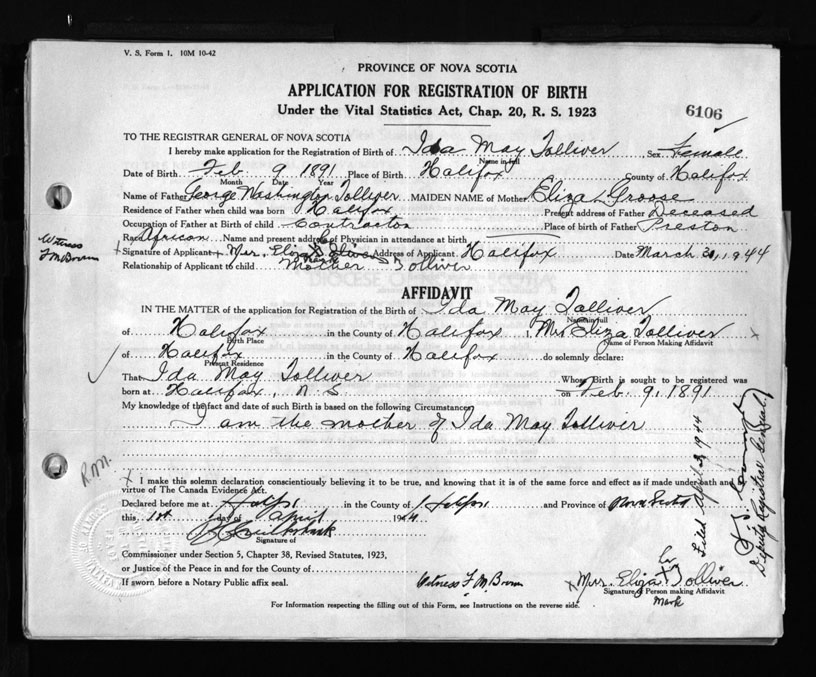 V. S. Form 1. 10M 10-42
PROVINCE OF NOVA SCOTIA
APPLICATION FOR REGISTRATION OF BIRTH
Under the Vital Statistics Act, Chap. 20, R. S. 1923
6106
TO THE REGISTRAR GENERAL OF NOVA SCOTIA
I hereby make application for the Registration of Birth of Ida May Tolliver Sex Female
Name in full
Date of Birth Feb 9 1891 Place of Birth Halifax County of Halifax
Month Date Year
Name of Father George Washington Tolliver MAIDEN NAME of Mother Eliza Groose
Residence of Father when child was born Halifax Present address of Father Deceased
Occupation of Father at Birth of child Contractor Place of birth of Father Preston
Race African Name and present address of Physician in attendance at birth
Witness
Signature of Applicant Mrs. Eliza Address of Applicant Halifax Date March 30, 1944
Relationship of Applicant to child Mother Tolliver
AFFIDAVIT
IN THE MATTER of the application for Registration of the Birth of Ida May Tolliver
Name in full
of Halifax in the County of Halifax I, Mrs Eliza Tolliver
Birth Place Name of Person Making Affidavit
of Halifax in the County of Halifax do solemnly declare:
Present Residence
That Ida May Tolliver Whose Birth is sought to be registered was
born at Halifax, N.S on Feb 9, 1891
My knowledge of the fact and date of such Birth is based on the following Circumstances
I am the mother of Ida May Tolliver
I make this solemn declaration conscientiously believing it to be true, and knowing that it is of the same force and effect as if made under oath and
virtue of The Canada Evidence Act.
Declared before me at in the County of and Province of Nova Scotia
this 1st day of April 1944
Signature of
Commissioner under Section 5, Chapter 38, Revised Statutes, 1923,
or Justice of the Peace in and for County of
If sworn before a Notary Public affix seal.
Witness F. M. Mrs. Eliza X Tolliver
her
Signature of Person making Affidavit
Mark
For Information respecting the filling out of this Form, see Instructions on the reverse side.
Filed April 1944
Deputy Registrar General